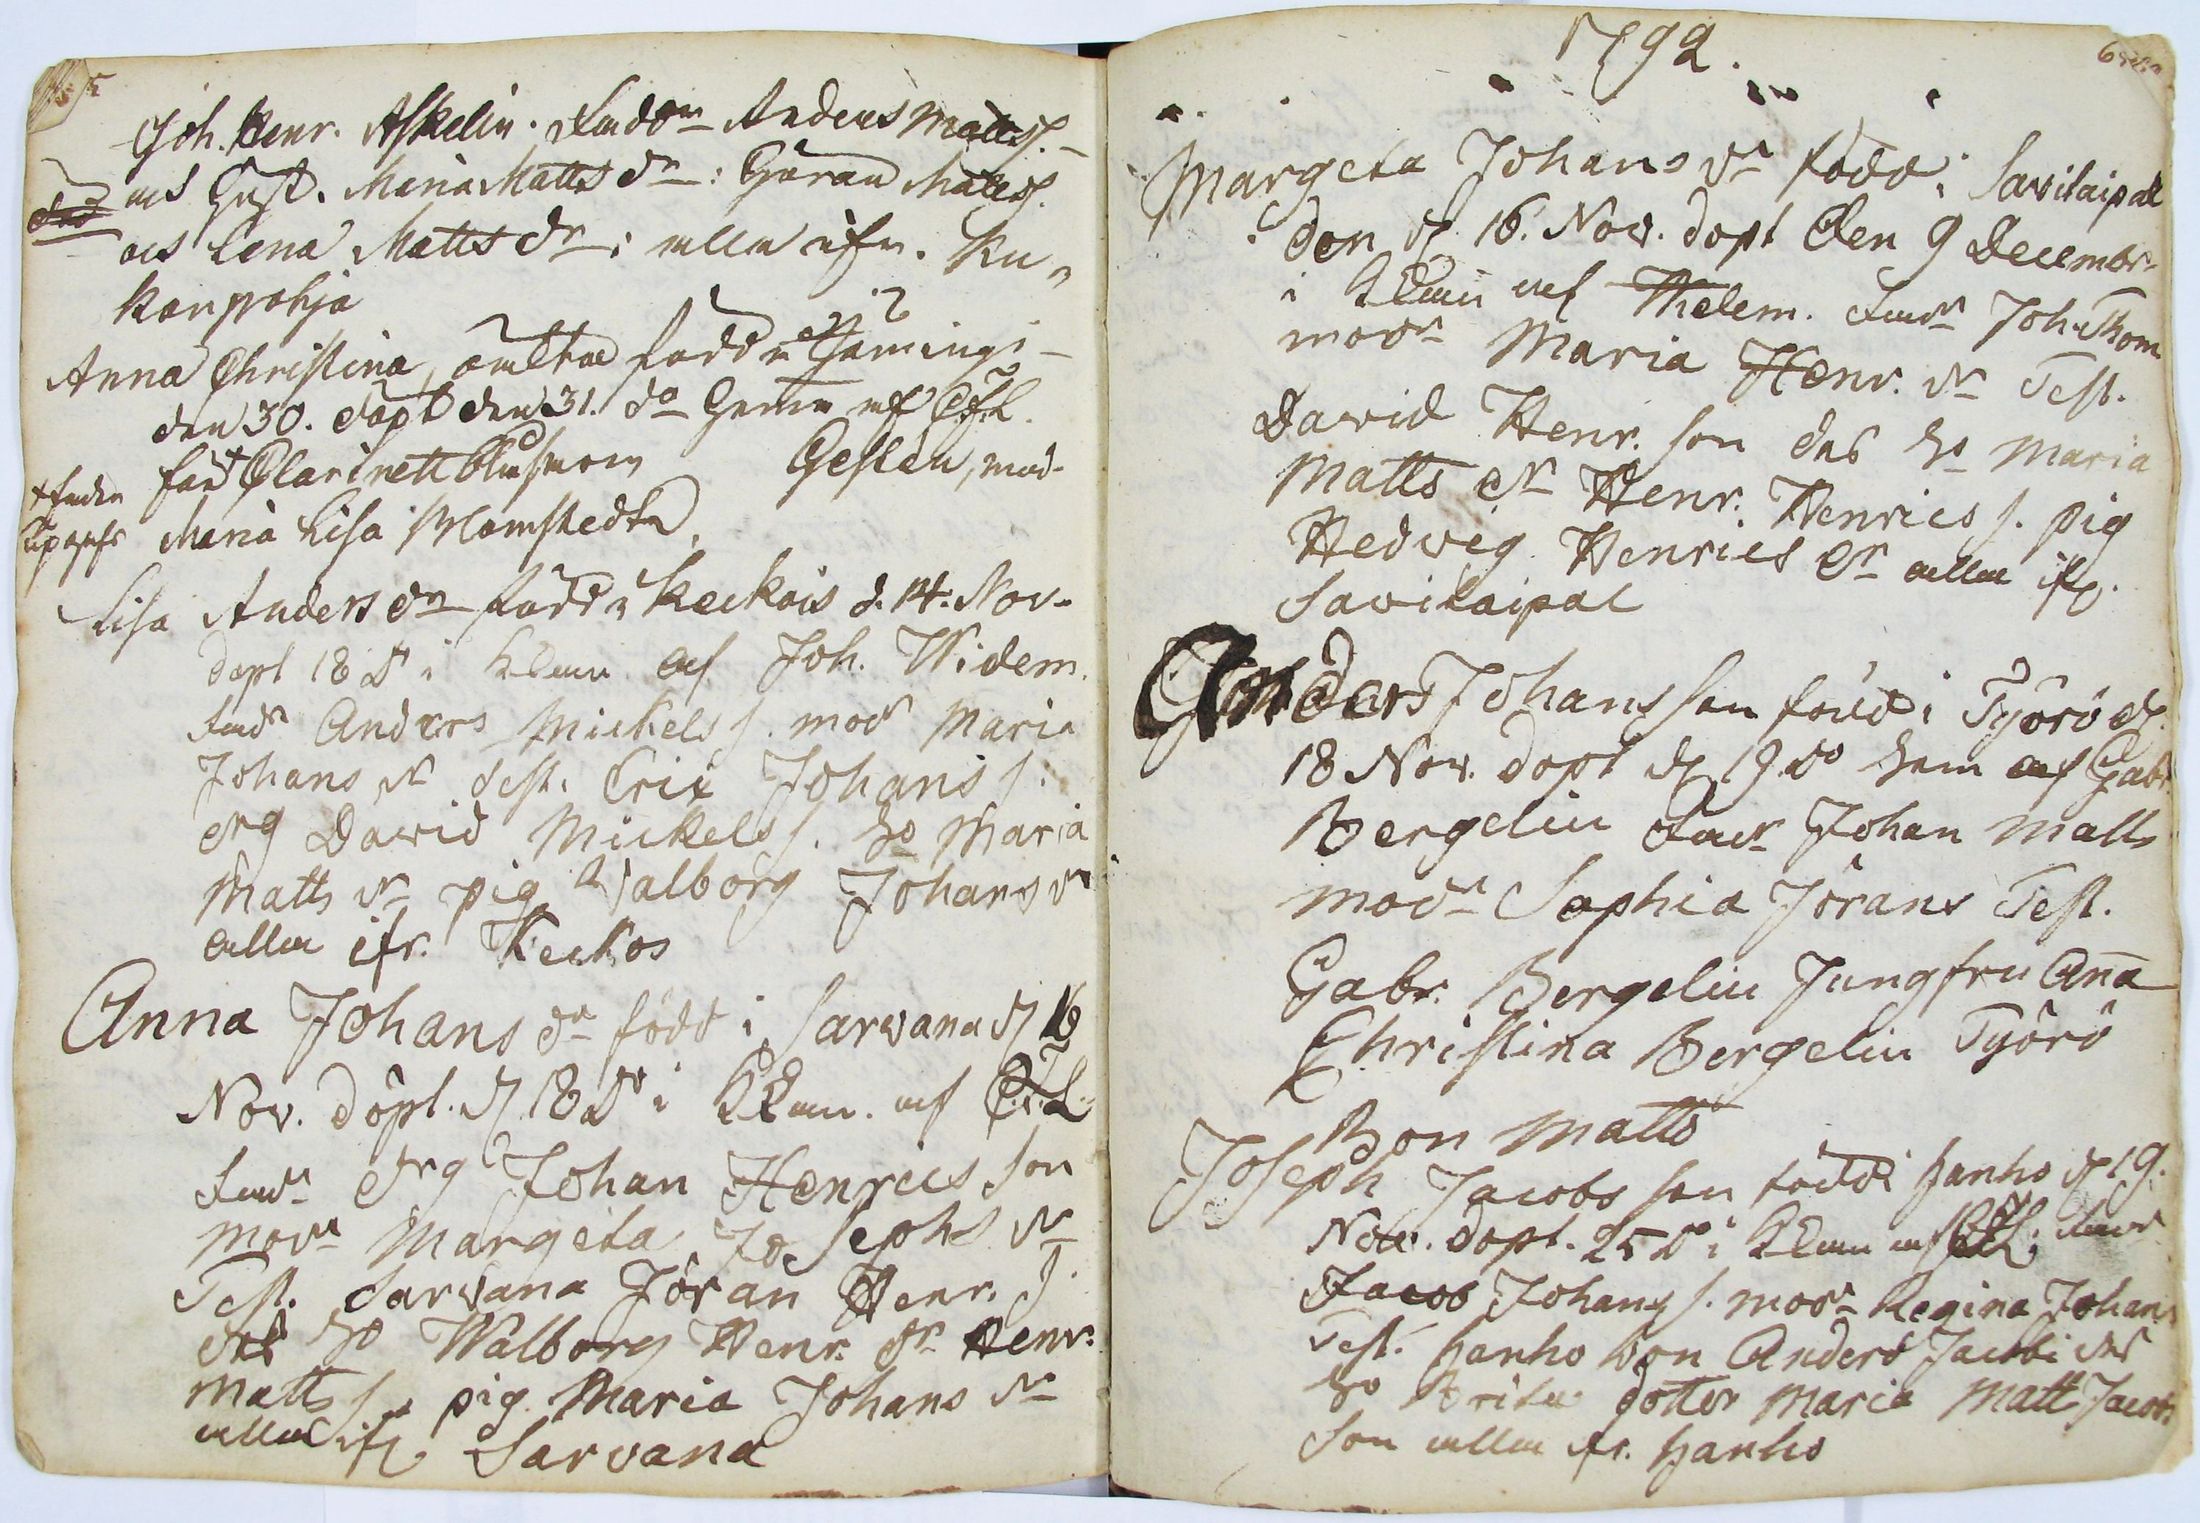 Joh. Henr. Askelin. Fadd Anders Matss.
ds Hust. Maria Matts dr: Göran Matss.
os Lena Matts dr: alla ifr. Ku-
kanpohja
Anna Christina, oäkta född i Hamingi-
den 30. döpt den 31. do hema af CfL
far Clarinettblåsaren Geslén, mod.
Maria Lisa Blomstedt.
Lisa Anders dr född i Keckois d. 14. Nov.
döpt 18 do i Kkan af Joh. Widem.
Fadr Anders Mickels s. modr Maria
Johans dr Test. Eric Johans s.
drg David Mickels s. ho Maria
Matts dr pig Walborg Johans dr
alla ifr. Keckos
Anna Johans dr född i Sarvana d 16
Nov. döpt. d 18 do i Kkan. af CfL
Fadr drg Johan Henrics son
modr Margeta Josephs dr
Test. Sarvana Jöran Henr. s.
ds ho Walborg Henr. dr Henr.
Matts s. pig. Maria Johans dr
alla ifr Sarvana
1792.
Margeta Johans dr född i Savitaipal
den d. 16. Nov. döpt den 9 Decembr.
i Kkan af Melem. Fadr Joh. Thom
modr Maria Henr. dr Test.
David Henr. son ds ho Maria
Matts dr Henr. Henrics s. pig
Hedvig Henrics dr alla ifr.
Savitaipal
Anders Johansson född i Työrö d.
18 Nov. döpt d 19. do hem af Gabr.
Bergelin Fadr Johan Matts
modr Sophia Jörans Test.
Gabr. Bergelin Jungfru Ana
Christina Bergelin Työrö
Bon Matts
Joseph Jacobs son född i Hanho d 19.
Nov. döpt. 25 do i Kkan af CfL. Fadr
Jacob Johans s. modr Regina Johans
Test. Hanho bon Anders Jacobi ds
ho Brita dotter Maria Matts Jacobs
son alla ifr. Hanho